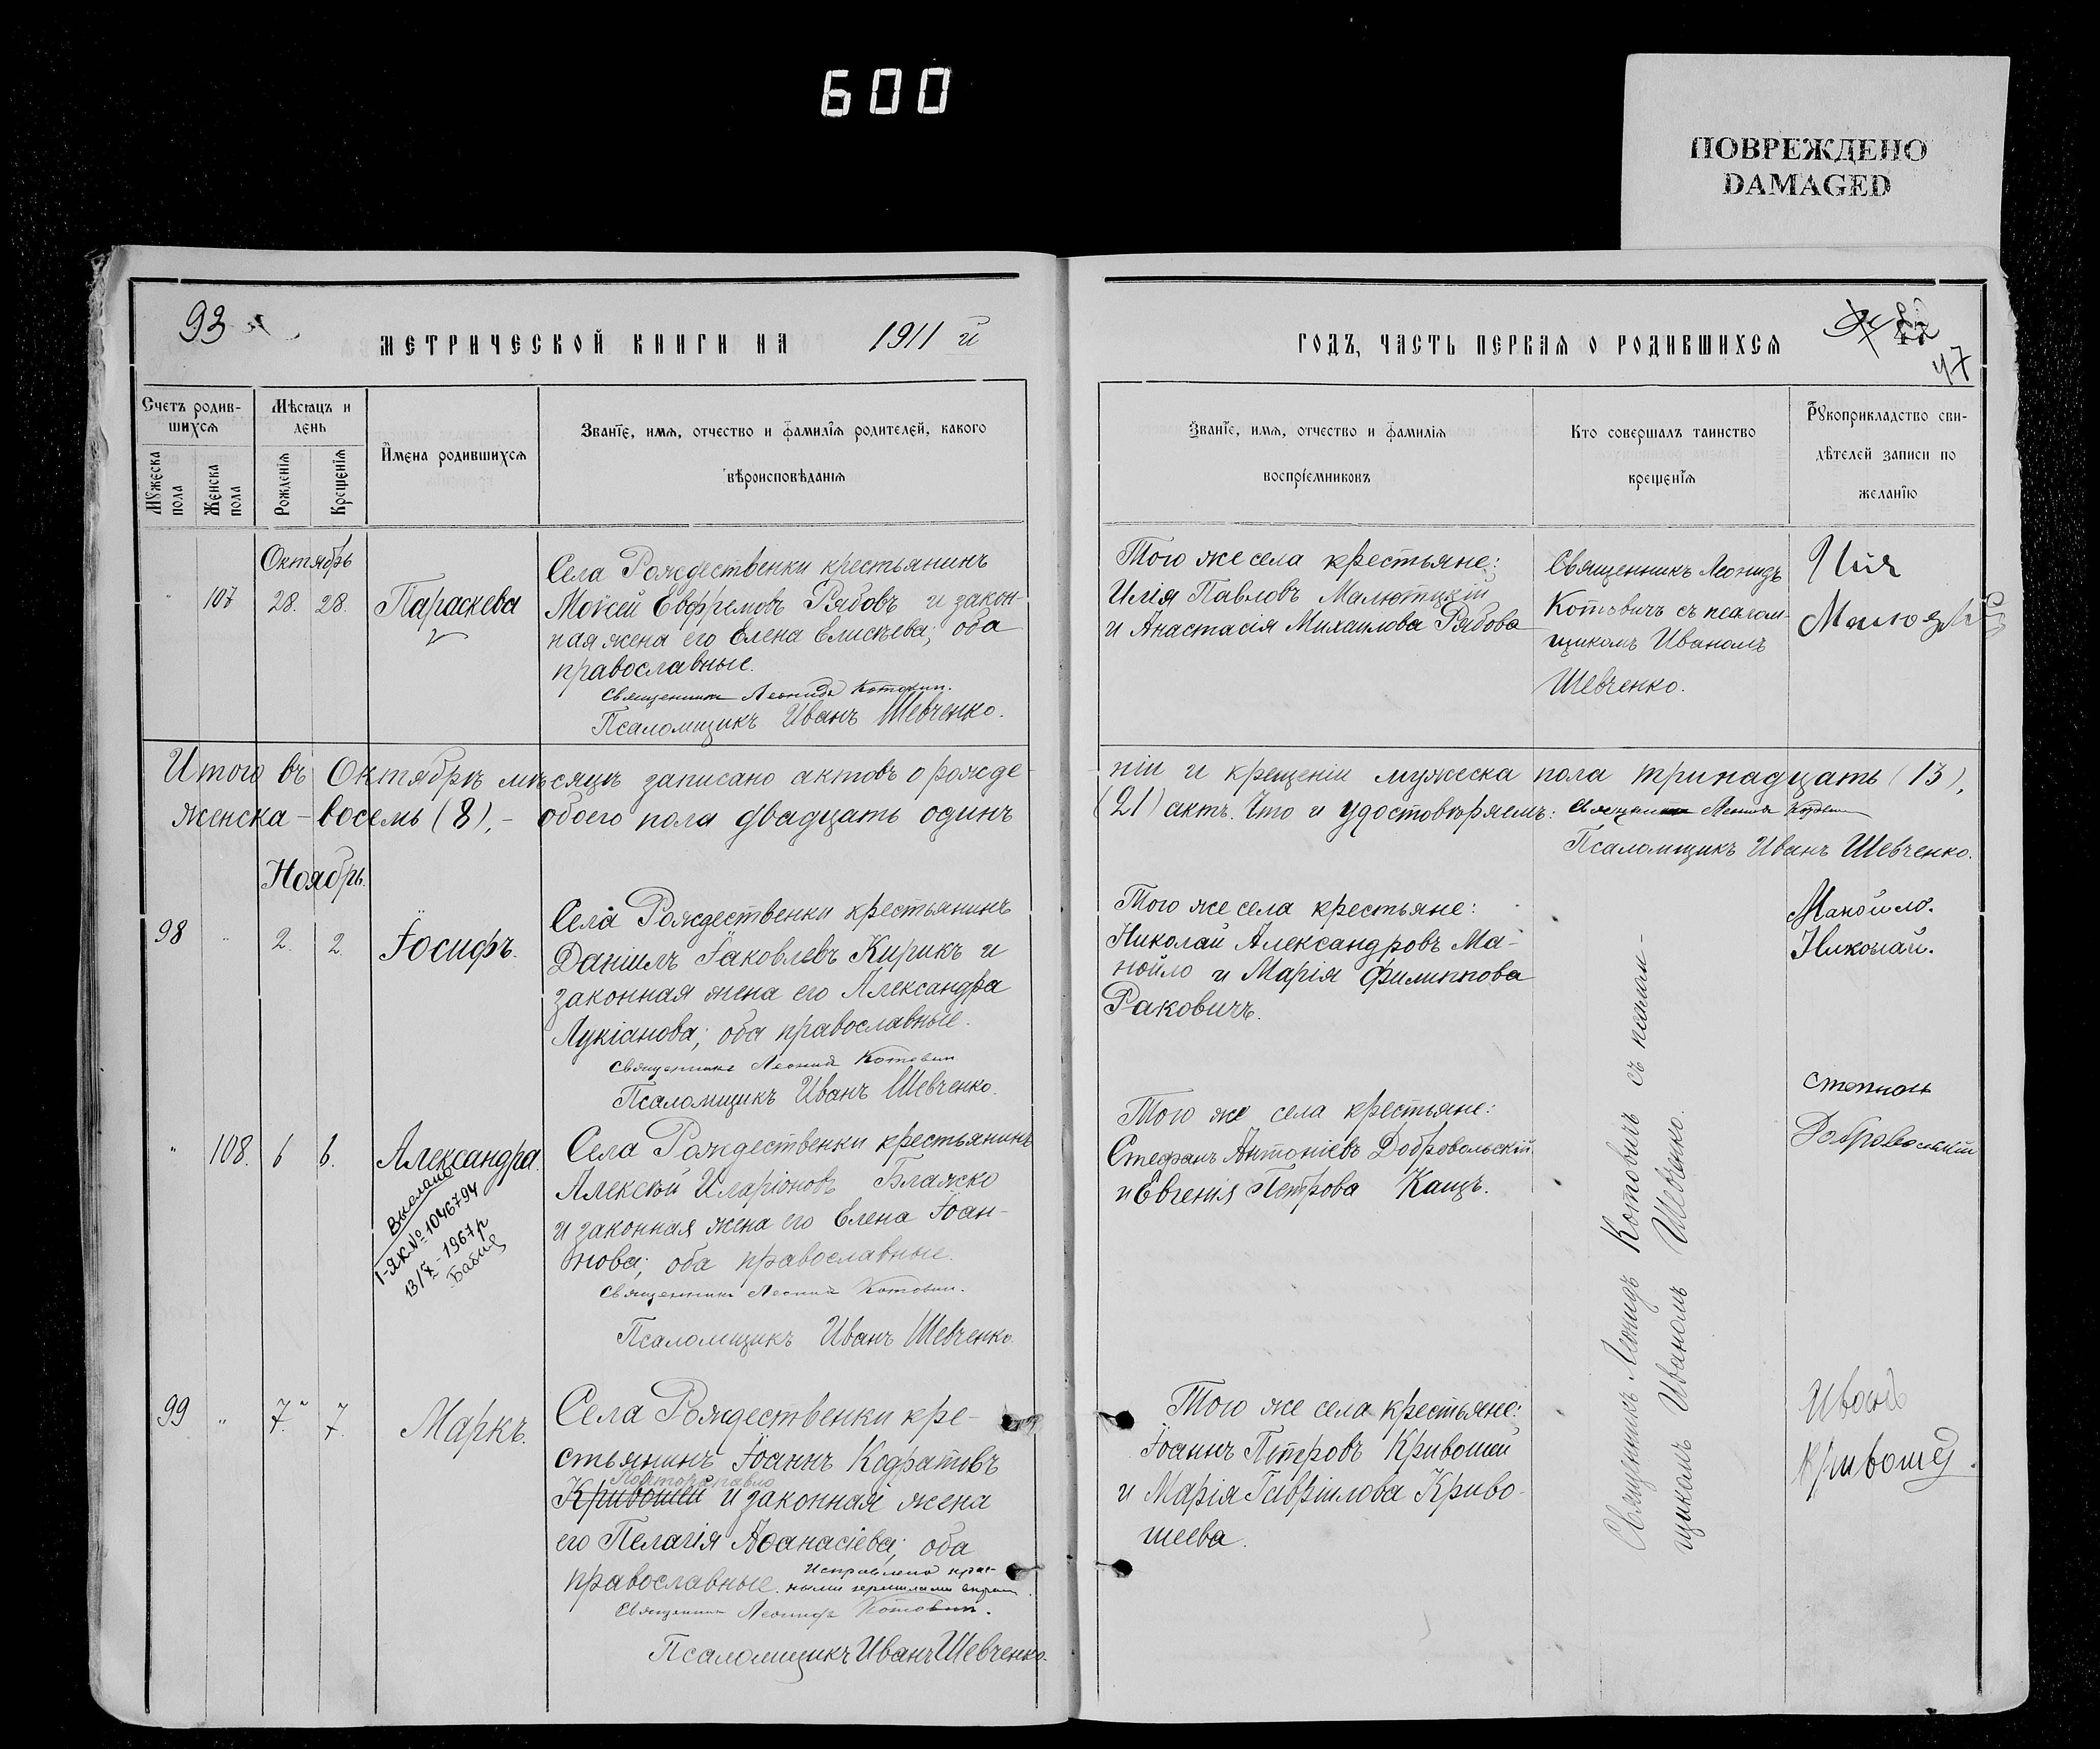 600
ПОВРЕЖДЕНО
DAMAGED
93
МЕТРИЧЕСКОЙ КНИГИ НА 1911 й
Счетъ родив-
шихся
Мѣсяцъ и
день
Мужеска
пола
Женска
пола
Рожденія
Крещенія
Имена родившихся
Званіе, имя, отчество и фамилія родителей, какого
вѣроисповѣданія
Октябрь
" 107 28. 28. Параскева
Села Рождественки крестьянинъ
Моѵсей Евфремовъ Рябовъ и закон-
ная жена его Елена Елисѣева; оба
православные.
Священникъ Леонидъ Котович.
Псаломщикъ Иванъ Шевченко.
Итого въ Октябрѣ мѣсяцѣ записано актовъ о рожде-
женска – восемь (8), – обоего пола двадцать одинъ
Ноябрь.
98 " 2. 2. Іосифъ.
Села Рождественки крестьянинъ
Даніилъ Іаковлевъ Кирикъ и
законная жена его Александра
Лукіанова; оба православные.
Священникъ Леонид Котович
Псаломщикъ Иванъ Шевченко.
" 108. 6 6. Александра.
Выслано
І-ЯК № 1046794
13/X - 1967 р
Села Рождественки крестьянинъ
Алексѣй Иларіоновъ Блажко
и законная жена его Елена Іоан-
нова; оба православные.
Священникъ Леонид Котович.
Псаломщикъ Иванъ Шевченко.
99 " 7. 7. Маркъ.
Села Рождественки кре-
стьянинъ Іоаннъ Кодратовъ
Кривошей и законная жена
его Пелагія Аѳанасіева; оба
православные. Исправлено крас-
ными чернилами
Священник Леонидъ Котович.
Псаломщикъ Иванъ Шевченко.
ГОДЪ, ЧАСТЬ ПЕРВАЯ О РОДИВШИХСЯ
47
Званіе, имя, отчество и фамилія
воспріемниковъ
Кто совершалъ таинство
крещенія
Рукоприкладство сви-
дѣтелей записи по
желанію
Того же села крестьяне:
Илія Павловъ Малютицкій
и Анастасія Михаилова Рябова
Священникъ Леонидъ
Котовичъ съ псалом-
щикомъ Иваномъ
Шевченко.
Илія
ніи и крещеніи мужеска пола тринадцать (13),
(21) актъ. Что и удостовѣряемъ: Священникъ Леонид Котович
Псаломщикъ Иванъ Шевченко.
Того же села крестьяне:
Николай Александровъ Ма-
нойло и Марія Филиппова
Раковичъ.
Манойло.
Николай.
Того же села крестьяне:
Стефанъ Антоніевъ Добровольскій
и Евгенія Петрова Кащъ.
Степань
Добровольскій
Священникъ Леонидъ Котовичъ съ псалом-
щикомъ Иваномъ Шевченко.
Того же села крестьяне:
Іоаннъ Петровъ Кривошей
и Марія Гавріилова Криво-
шеева.
Иванъ
Кривошей.